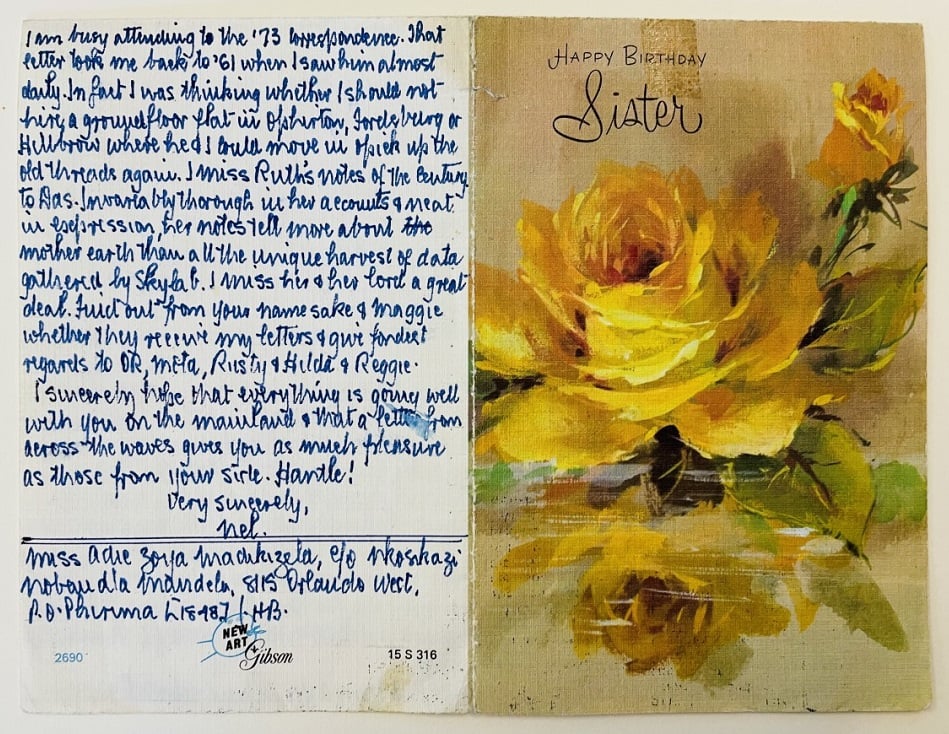 I am busy attending to the '73 correspondence. That
letter took me back to '61 when I saw him almost
daily. In fact I was thinking whether I should not
hire a groundfloor flat in Ophirton, Fordsburg or
Hillbrow where he & I could move in & pick up the
old threads again. I miss Ruth's notes of the century
to Das. Invariably thorough in her accounts & neat
in expression, her notes tell more about the
mother earth than all the unique harvest of data
gathered by Skylab. I miss her & her lord a great
deal. Find out from your namesake & Maggie
whether they receive my letters & give fondest
regards to OR, Meta, Rusty & Hilda & Reggie.
I sincerely hope that everything is going well
with you on the mainland & that a letter from
across the waves gives you as much pleasure
as those from your side. Handle!
Very sincerely,
Nel.
Miss Adie Zoya Madikizela, c/o Nkosikazi
Nobandla Mandela, 8115 Orlando West,
P.O. Phirima
NEW
ART
Gibson
2690
15 S 316
HAPPY BIRTHDAY
Sister